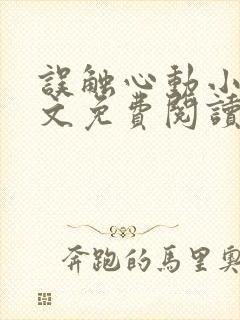 誤触心動小
文免費閱讀
奔跑的馬里奧